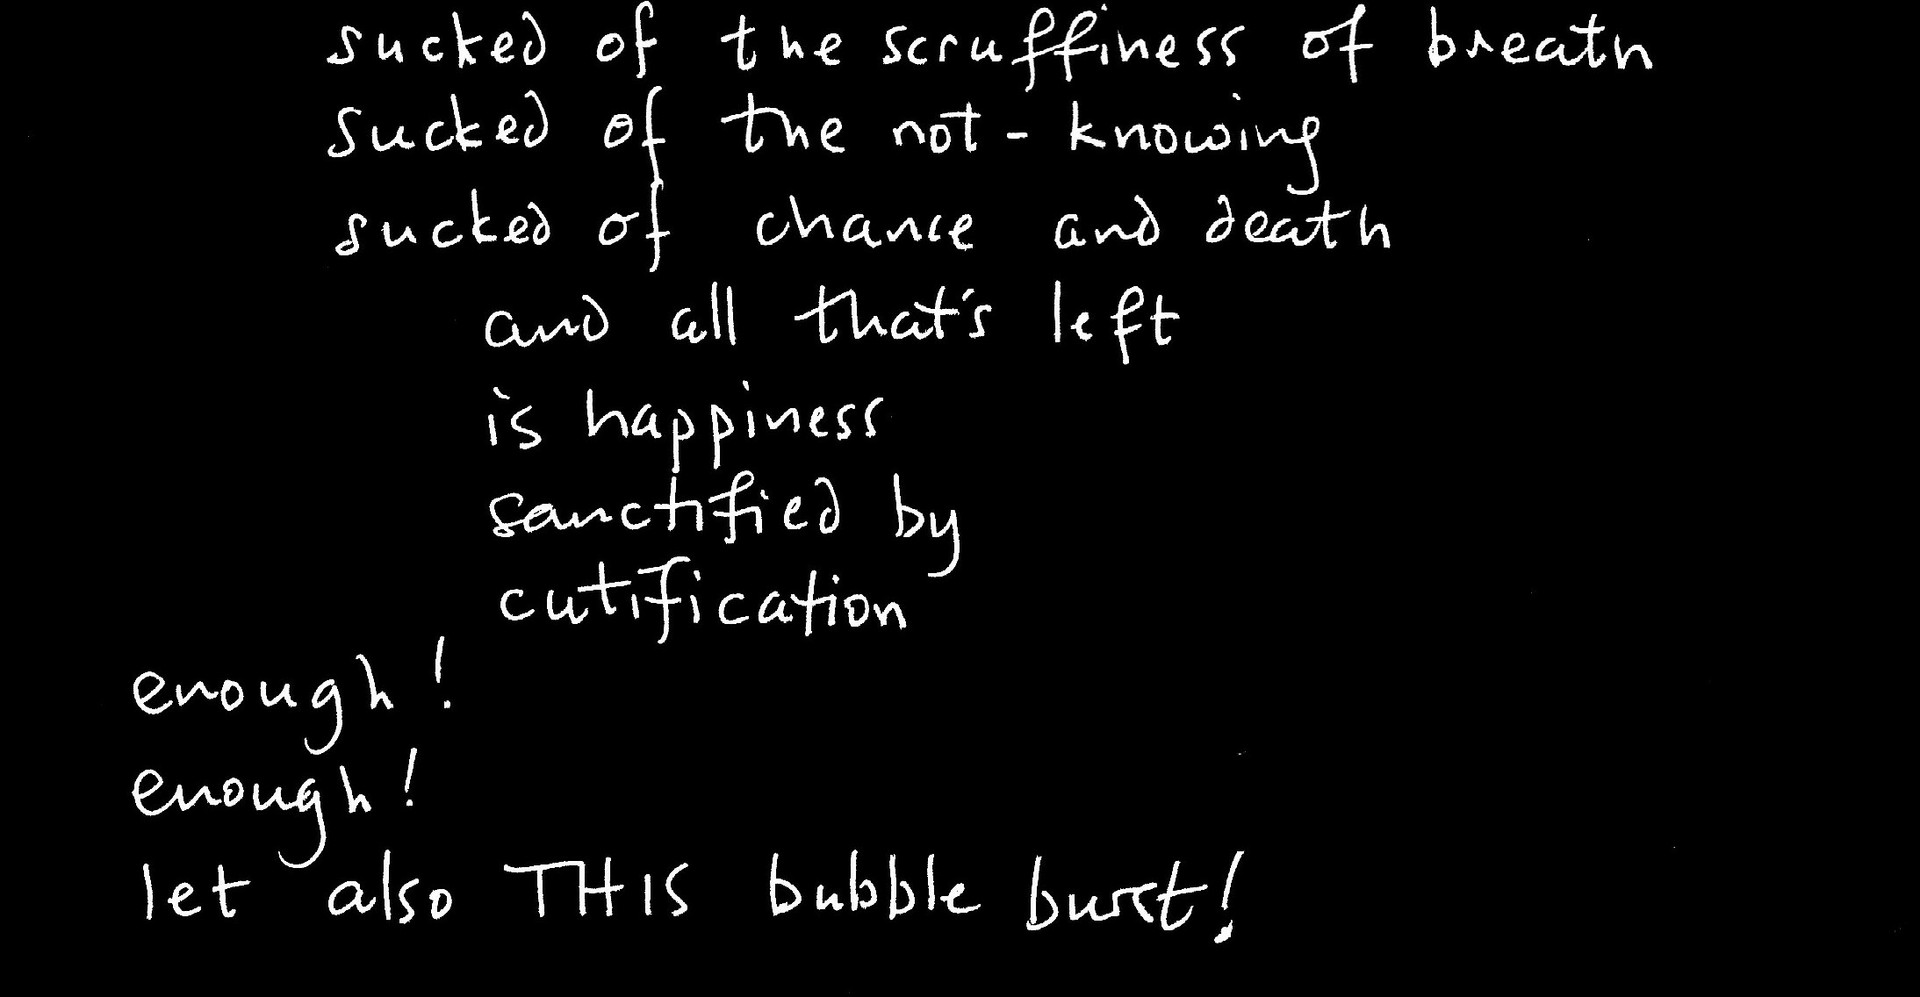 sucked of the scruffiness of breath
sucked of the not-knowing
sucked of chance and death
and all that's left
is happiness
sanctified by
cutification
enough!
enough!
let also THIS bubble burst!